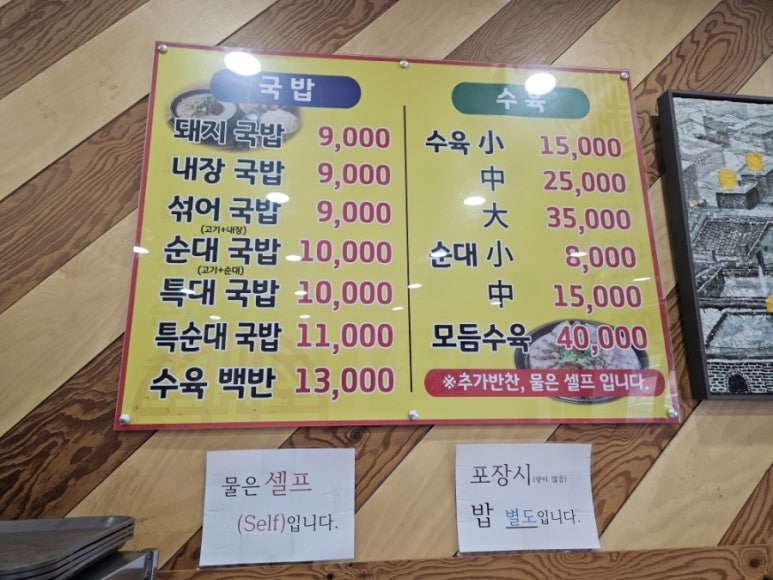 국밥
돼지 국밥 9,000
내장 국밥 9,000
섞어 국밥 9,000
(고기+내장)
순대 국밥 10,000
(고기+순대)
특대 국밥 10,000
특순대 국밥 11,000
수육 백반 13,000
수육
수육 小 15,000
中 25,000
大 35,000
순대 小 8,000
中 15,000
모듬수육 40,000
※추가반찬, 물은 셀프 입니다.
물은 셀프
(Self)입니다.
포장시(양이 많음)
밥 별도입니다.